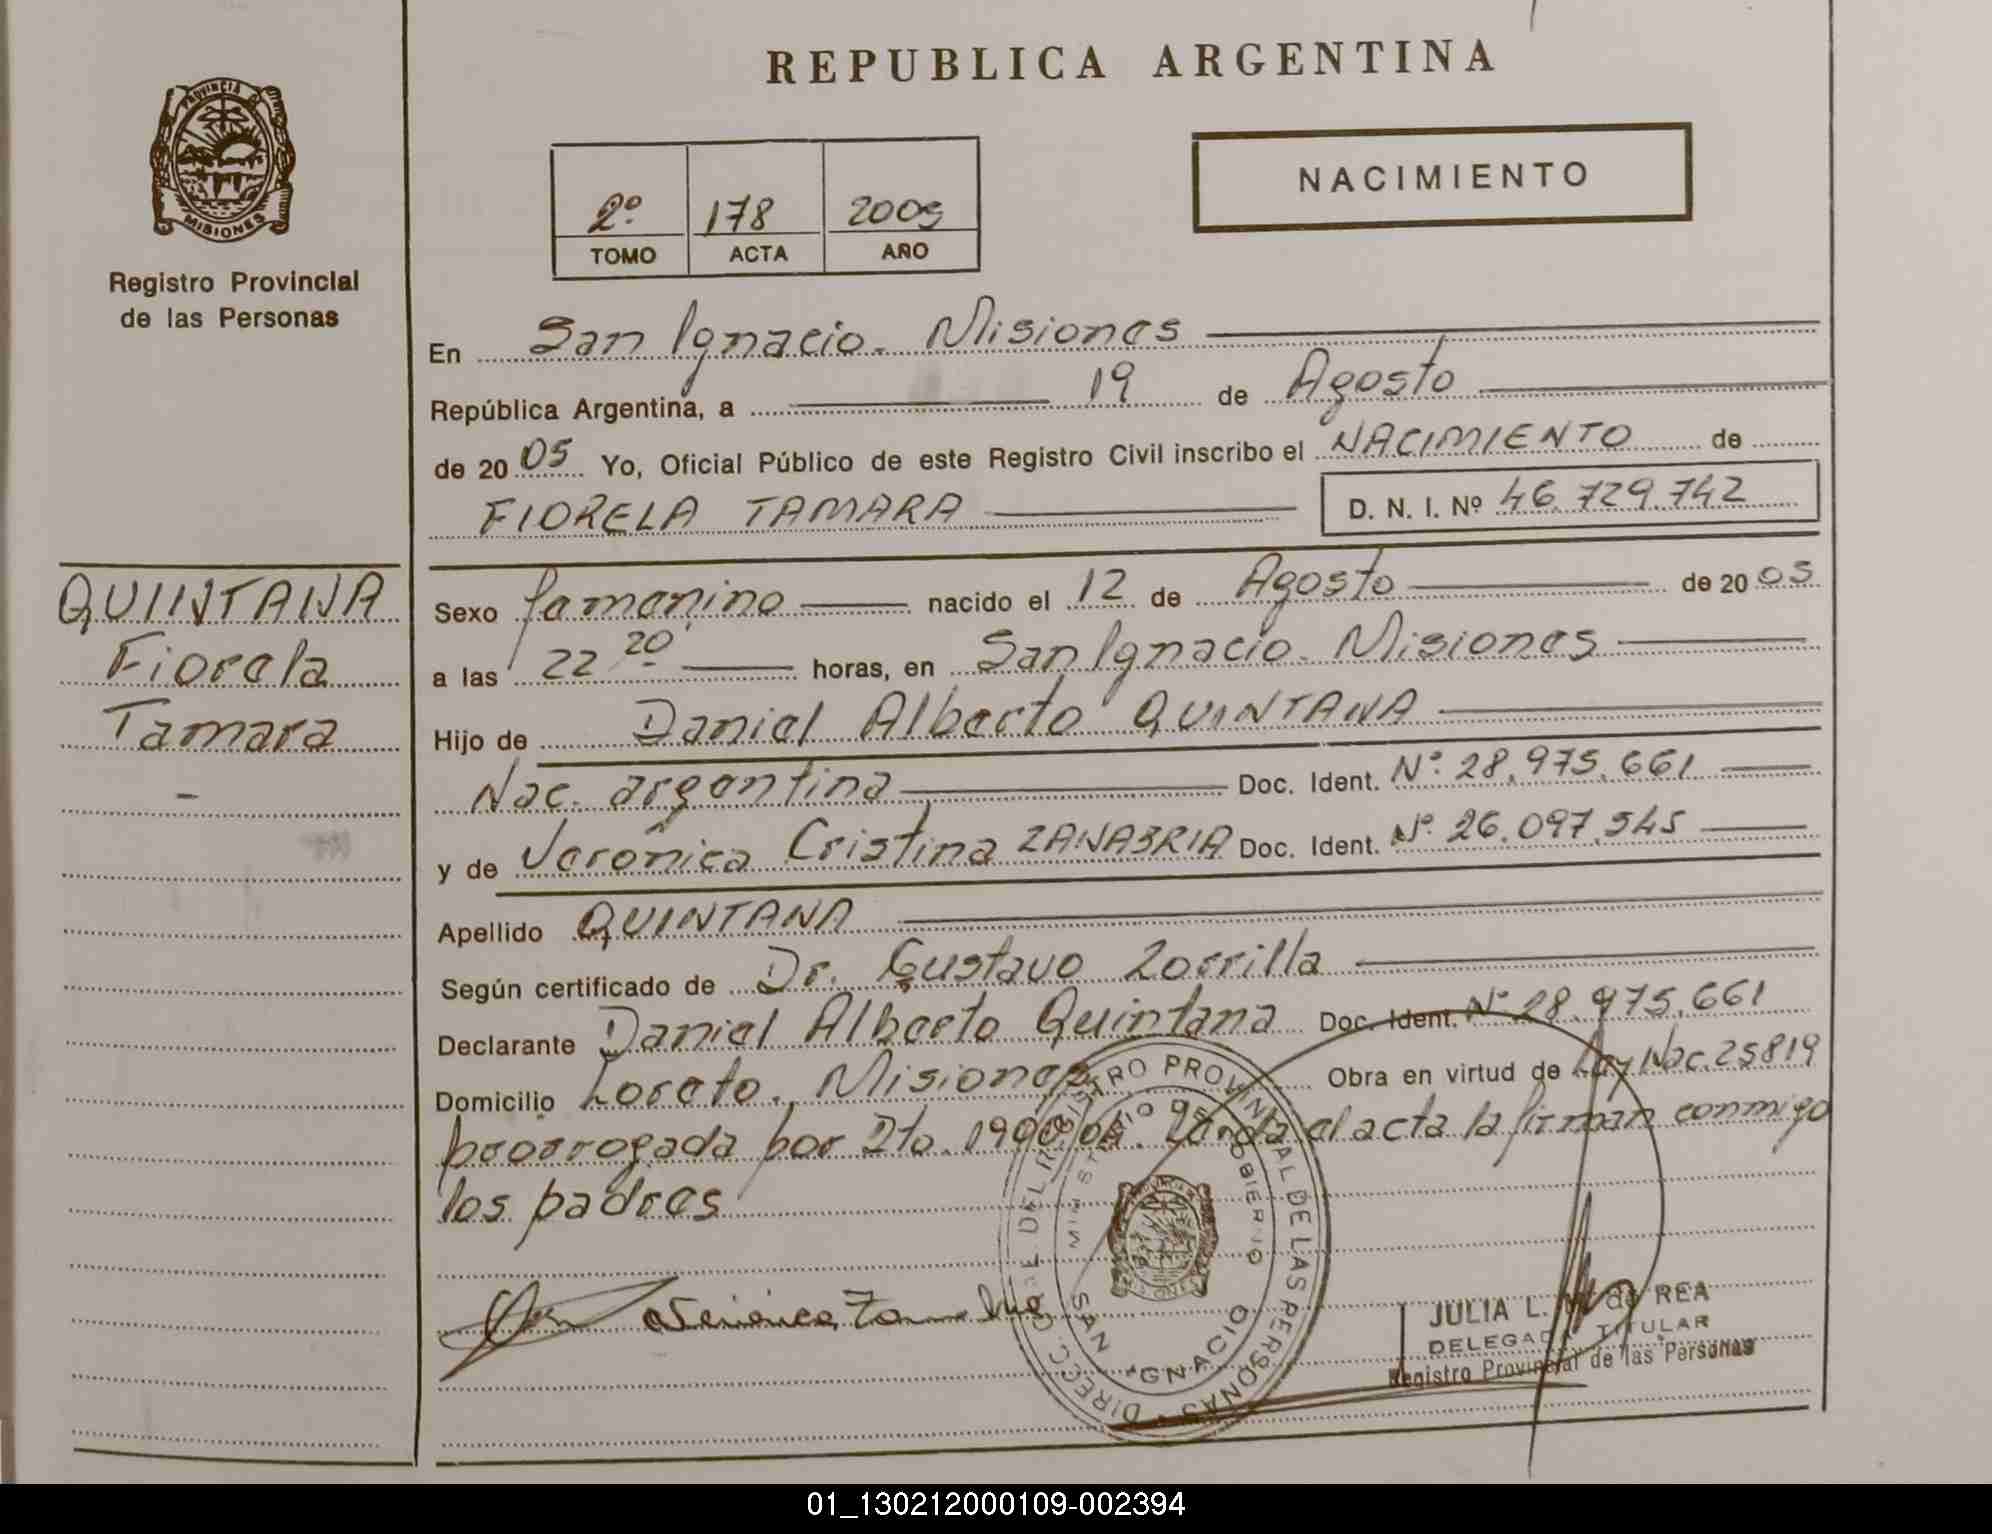 REPUBLICA ARGENTINA
PROVINCIA DE
MISIONES
Registro Provincial
de las Personas
2º 178 2005
TOMO ACTA AÑO
NACIMIENTO
En San Ignacio. Misiones
República Argentina, a 19 de Agosto
de 2005 Yo, Oficial Público de este Registro Civil inscribo el NACIMIENTO de
FIORELA TAMARA D. N. I. Nº 46.729.742
QUINTANA
Fiorela
Tamara
-
Sexo famenino nacido el 12 de Agosto de 2005
a las 22 20 horas, en San Ignacio. Misiones
Hijo de Daniel Alberto QUINTANA
Nac. argentina Doc. Ident. Nº 28.975.661
y de Verónica Cristina ZANABRIA Doc. Ident. Nº 26.097.545
Apellido QUINTANA
Según certificado de Dr. Gustavo Zorrilla
Declarante Daniel Alberto Quintana Doc. Ident. Nº 28.975.661
Domicilio Loreto. Misiones Obra en virtud de Ley Nac. 25819
prorrogada por Dto. 1900/04. el acta la firman conmigo
los padres
DIREC. GRAL. DEL REGISTRO PROVINCIAL DE LAS PERSONAS
MINISTERIO DE GOBIERNO
SAN IGNACIO
JULIA L. de REA
DELEGADA TITULAR
Registro Provincial de las Personas
01_130212000109-002394